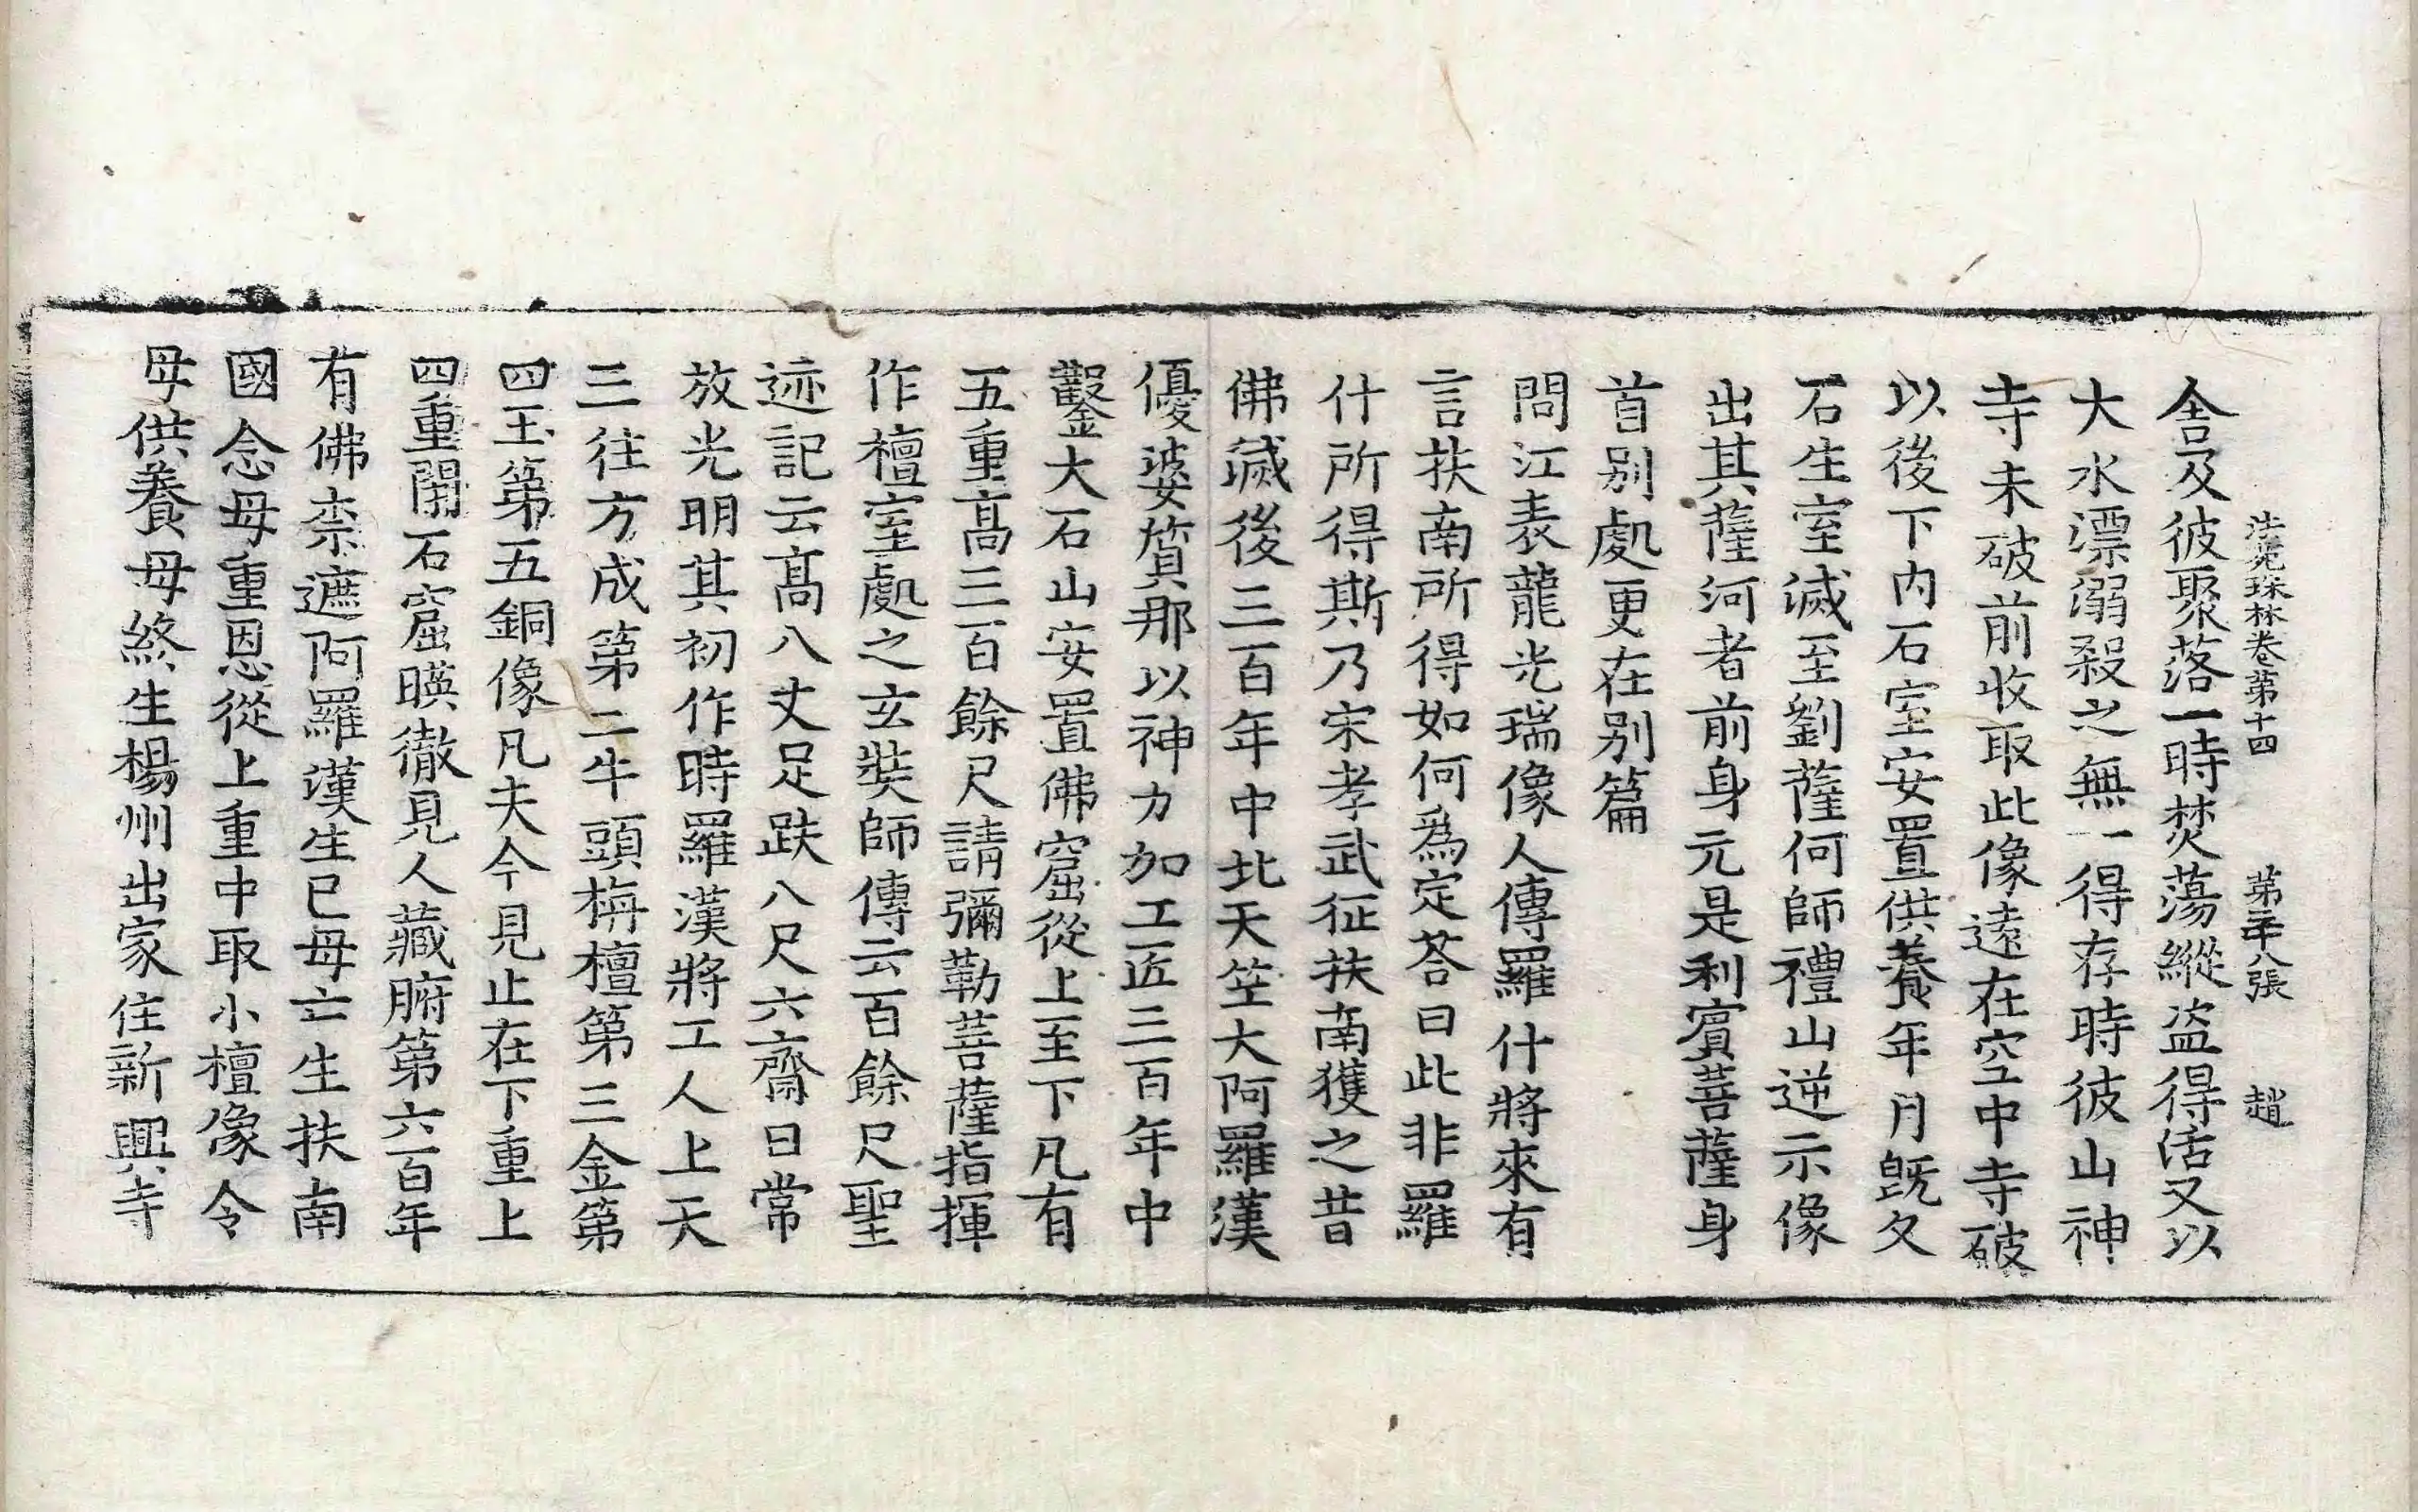 法苑珠林卷第十四 第三十八張 趙
舍及彼聚落一時焚蕩縱盜得活又以
大水漂溺殺之無一得存時彼山神
寺未破前收取此像遠在空中寺破
以後下內石室安置供養年月旣久
石生室滅至劉薩何師禮山逆示像
出其薩河者前身元是利賓菩薩身
首别處更在别篇
問江表龍光瑞像人傳羅什將來有
言扶南所得如何爲定荅曰此非羅
什所得斯乃宋孝武征扶南獲之昔
佛滅後三百年中北天笁大阿羅漢
優婆質那以神力加工匠三百年中
鑿大石山安置佛窟從上至下凡有
五重髙三百餘尺請彌勒菩薩指揮
作檀室處之玄奘師傳云百餘尺聖
迹記云髙八丈足趺八尺六齋日常
放光明其初作時羅漢將工人上天
三往方成第二牛頭栴檀第三金第
四玉第五銅像凡夫今見止在下重上
四重閇石窟暎徹見人藏腑第六百年
有佛柰遮阿羅漢生已母亡生扶南
國念母重恩從上重中取小檀像令
母供養母終生楊州出家住新興寺